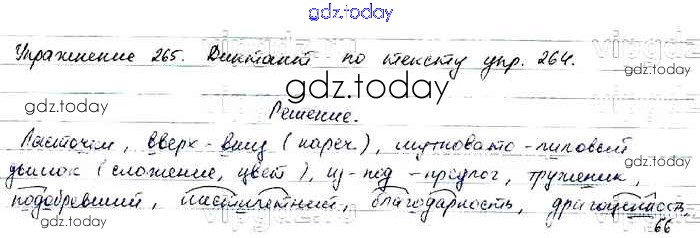 gdz.today
Упражнение 265. Диктант по тексту упр. 264.
gdz.today
gdz.today
Решение.
Ласточки, вверх-вниз (нареч.), мутновато-лиловый
дымок (сложение, цвет), из-под - предлог, труженик,
gdz.today
подобревший, шестилетний, благодарность, драгоценность,
66